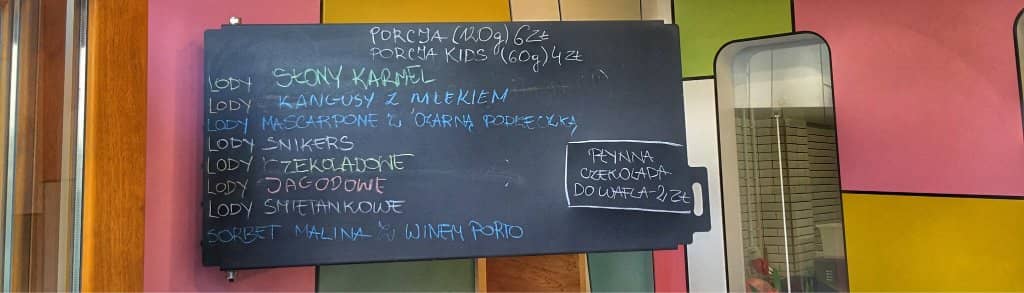 PORCJA (120g) 6 ZŁ
PORCJA KIDS (60g) 4 ZŁ
LODY SŁONY KARMEL
LODY KANGUSY Z MLEKIEM
LODY MASCARPONE Z CZARNĄ PORZECZKĄ
LODY SNIKERS
LODY CZEKOLADOWE
LODY JAGODOWE
LODY ŚMIETANKOWE
SORBET MALINA Z WINEM PORTO
PŁYNNA
CZEKOLADA
DO WAFLA-2 ZŁ